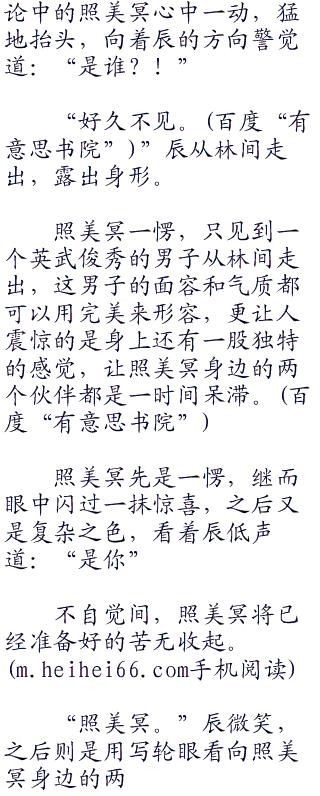 论中的照美冥心中一动，猛
地抬头，向着辰的方向警觉
道：“是谁？！”
“好久不见。(百度“有
意思书院”)”辰从林间走
出，露出身形。
照美冥一愣，只见到一
个英武俊秀的男子从林间走
出，这男子的面容和气质都
可以用完美来形容，更让人
震惊的是身上还有一股独特
的感觉，让照美冥身边的两
个伙伴都是一时间呆滞。(百
度“有意思书院”)
照美冥先是一愣，继而
眼中闪过一抹惊喜，之后又
是复杂之色，看着辰低声
道：“是你”
不自觉间，照美冥将已
经准备好的苦无收起。
(m.heihei66.com手机阅读)
“照美冥。”辰微笑，
之后则是用写轮眼看向照美
冥身边的两